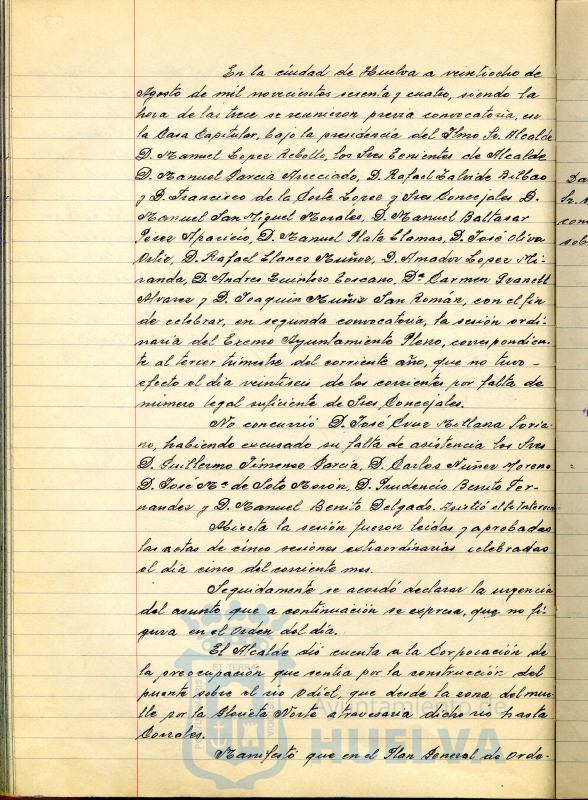 En la ciudad de Huelva a veintiocho de
Agosto de mil novecientos sesenta y cuatro, siendo la
hora de las trece se reunieron previa convocatoria, en
la Casa Capitular, bajo la presidencia del Ilmo Sr. Alcalde
D. Manuel Lopez Rebollo, los Sres Tenientes de Alcalde
D. Manuel Garcia Asecciado, D. Rafael Zalvide Bilbao
y D. Francisco de la Corte Lopez y Sres Concejales D.
Manuel San Miguel Morales, D. Manuel Baltasar
Pérez Aparicio, D. Manuel Plata Llamas, D. José Oliva
Ortiz, D. Rafael Llanes Muñoz, D. Amador Lopez Mi-
randa, D. Andres Quintero Toscano, Dª Carmen Granell
Alvarez y D. Joaquin Muñiz San Román, con el fin
de celebrar, en segunda convocatoria, la sesión ordi-
naria del Excmo Ayuntamiento Pleno, correspondien-
te al tercer trimestre del corriente año, que no tuvo-
efecto el día veintiseis de los corrientes por falta de
número legal suficiente de Sres Concejales.
No concurrió D. José Cruz Millana Soria-
no, habiendo excusado su falta de asistencia los Sres
D. Guillermo Jimenez Garcia, D. Carlos Nuñez Moreno
D. José Mª de Soto Morón, D. Prudencio Benito Fer-
nandez y D. Manuel Benito Delgado. Asistió el Sr Interven
Abierta la sesión fueron leidas y aprobadas
las actas de cinco sesiones extraordinarias celebradas
el día cinco del corriente mes.
Seguidamente se acordó declarar la urgencia
del asunto que a continuación se expresa, que no fi-
gura en el Orden del día.
El Alcalde dio cuenta a la Corporación de
la preocupación que sentia por la construcción del
puente sobre el rio Odiel, que desde la zona del mue-
lle por la Glorieta Norte atravesaria dicho rio hasta
Corrales.
Manifestó que en el Plan General de Orde-
Ayuntamiento de
HUELVA
ET TERRA
Da
Sr. s
con
sob